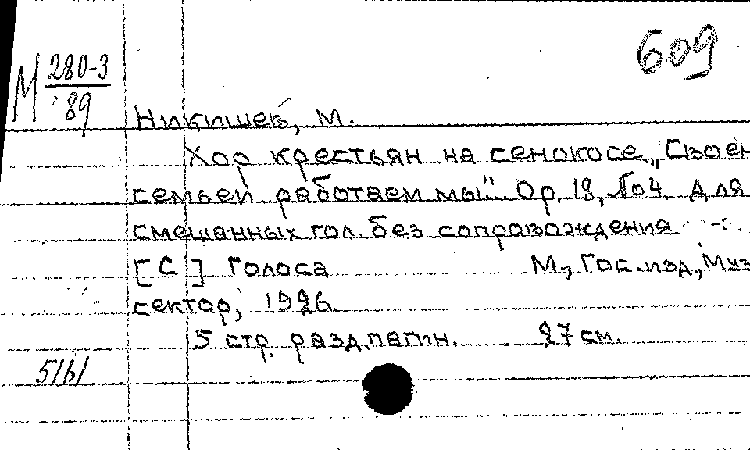 609
М 280-3
89
Никишев, М.
Хор крестьян на сенокосе „Своей
семьей работаем мы". Op. 18, №4. Для
смешанных гол. без сопровождения
[С] Голоса М., Гос. изд., Муз.
сектор, 1926.
5 стр. разд. пагин. 27 см.
51б1